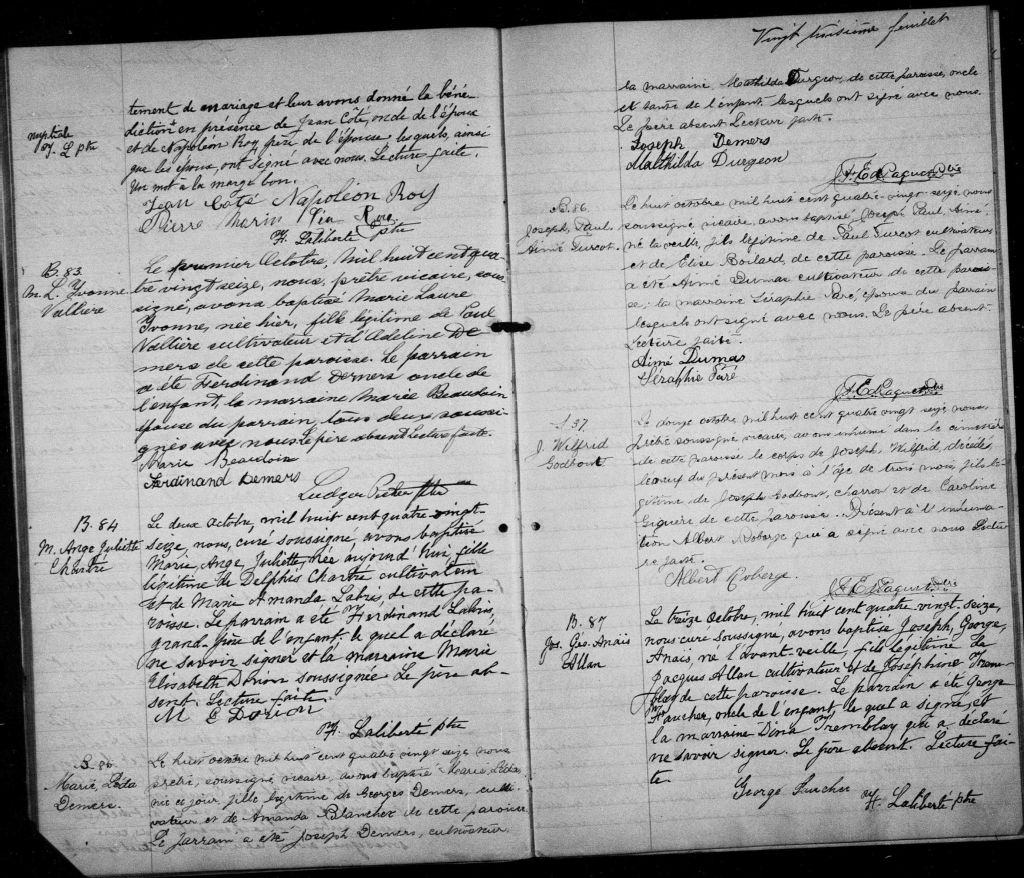 nuptiale
tement de mariage et leur avons donné la béné-
diction en présence de Jean Côté, oncle de l'époux
et de Napoléon Roy, père de l'épouse lesquels, ainsi
que les époux, ont signé avec nous. Lecture faite.
Un mot à la marge bon.
Jean Coté Napoléon Roy
Pierre Marin
Laliberté ptre
B. 83
M. L. Yvonne
Vallière
Le premier Octobre, mil huit cent qua-
tre vingt seize, nous, prêtre vicaire, sous-
signé, avons baptisé Marie Laure
Yvonne, née hier, fille légitime de Paul
Vallière cultivateur et d'Adeline De
mers de cette paroisse. Le parrain
a été Ferdinand Demers oncle de
l'enfant, la marraine Marie Beaudoin
épouse du parrain, tous deux soussi-
gnés avec nous. Le père absent Lecture faite.
Marie Beaudoin
Ferdinand Demers
Ludger ptre
B. 84
M. Ange Juliette
Chartré
Le deux Octobre, mil huit cent quatre vingt-
seize, nous, curé soussigné, avons baptisé
Marie, Ange, Juliette, née aujourd'hui, fille
légitime de Delphis Chartré cultivateur
et de Marie Amanda de cette pa-
roisse. Le parrain a été Ferdinand
grand-père de l'enfant lequel a déclaré
ne savoir signer et la marraine Marie
Elisabeth Dorion soussignée. Le père ab-
sent. Lecture faite
M E Dorion
Laliberté ptre
86
Marie,
Demers.
Le huit octobre mil huit cent quatre vingt seize nous
prêtre, soussigné vicaire, avons baptisé Marie,
née ce jour, fille légitime de Georges Demers, culti-
vateur, et de Amanda Blanchet de cette paroisse
Le parrain a été Joseph Demers, cultivateur
Vingt troisième feuillet
la marraine Mathilda Turgeon, de cette paroisse, oncle
et tante de l'enfant, lesquels ont signé avec nous.
Le père absent Lecture faite.
Joseph Demers
Malthilda Durgeon
J. F. E. d. Paquet Ptre
B. 86
Joseph, Paul,
Aimé Turcot.
Le huit octobre mil huit cent quatre-vingt seize, nous
soussigné vicaire, avons baptisé, Joseph Paul, Aimé
né la veille, fils légitime de Paul Turcot cultivateur
et de Elise Boilard de cette paroisse. Le parrain
a été Aimé Dumas cultivateur de cette parois-
se; la marraine Séraphie Paré, épouse du parrain
lesquels ont signé avec nous. Le père absent.
Lecture faite.
Aimé Dumas
Séraphie Paré
J. F. E. d. Paquet Ptre
S. 37
J. Wilfrid
Godbout
Le douze octobre, mil huit cent quatre vingt seize, nous,
prêtre soussigné vicaire, avons inhumé dans le cimetière
de cette paroisse le corps de Joseph, Wilfrid, décédé
le onze du présent mois à l'âge de trois mois, fils lé-
gitime de Joseph Godbout, charron et de Caroline
Giguère de cette paroisse. Présent à l'inhuma-
tion Albert Roberge qui a signé avec nous Lectu-
re faite.
Albert Roberge.
J. F. E. d. Paquet Ptre
B. 87
Jos. Geo. Anais
Allan
Le treize Octobre, mil huit cent quatre-vingt-seize,
nous curé soussigné, avons baptisé Joseph, George,
Anaïs, né l'avant veille, fils légitime de
Jacques Allan cultivateur et de Joséphine Trem-
blay de cette paroisse. Le parrain a été George
Faucher, oncle de l'enfant, lequel a signé, et
la marraine Dina Tremblay qui a déclaré
ne savoir signer. Le père absent. Lecture fai-
te.
George
Laliberté ptre